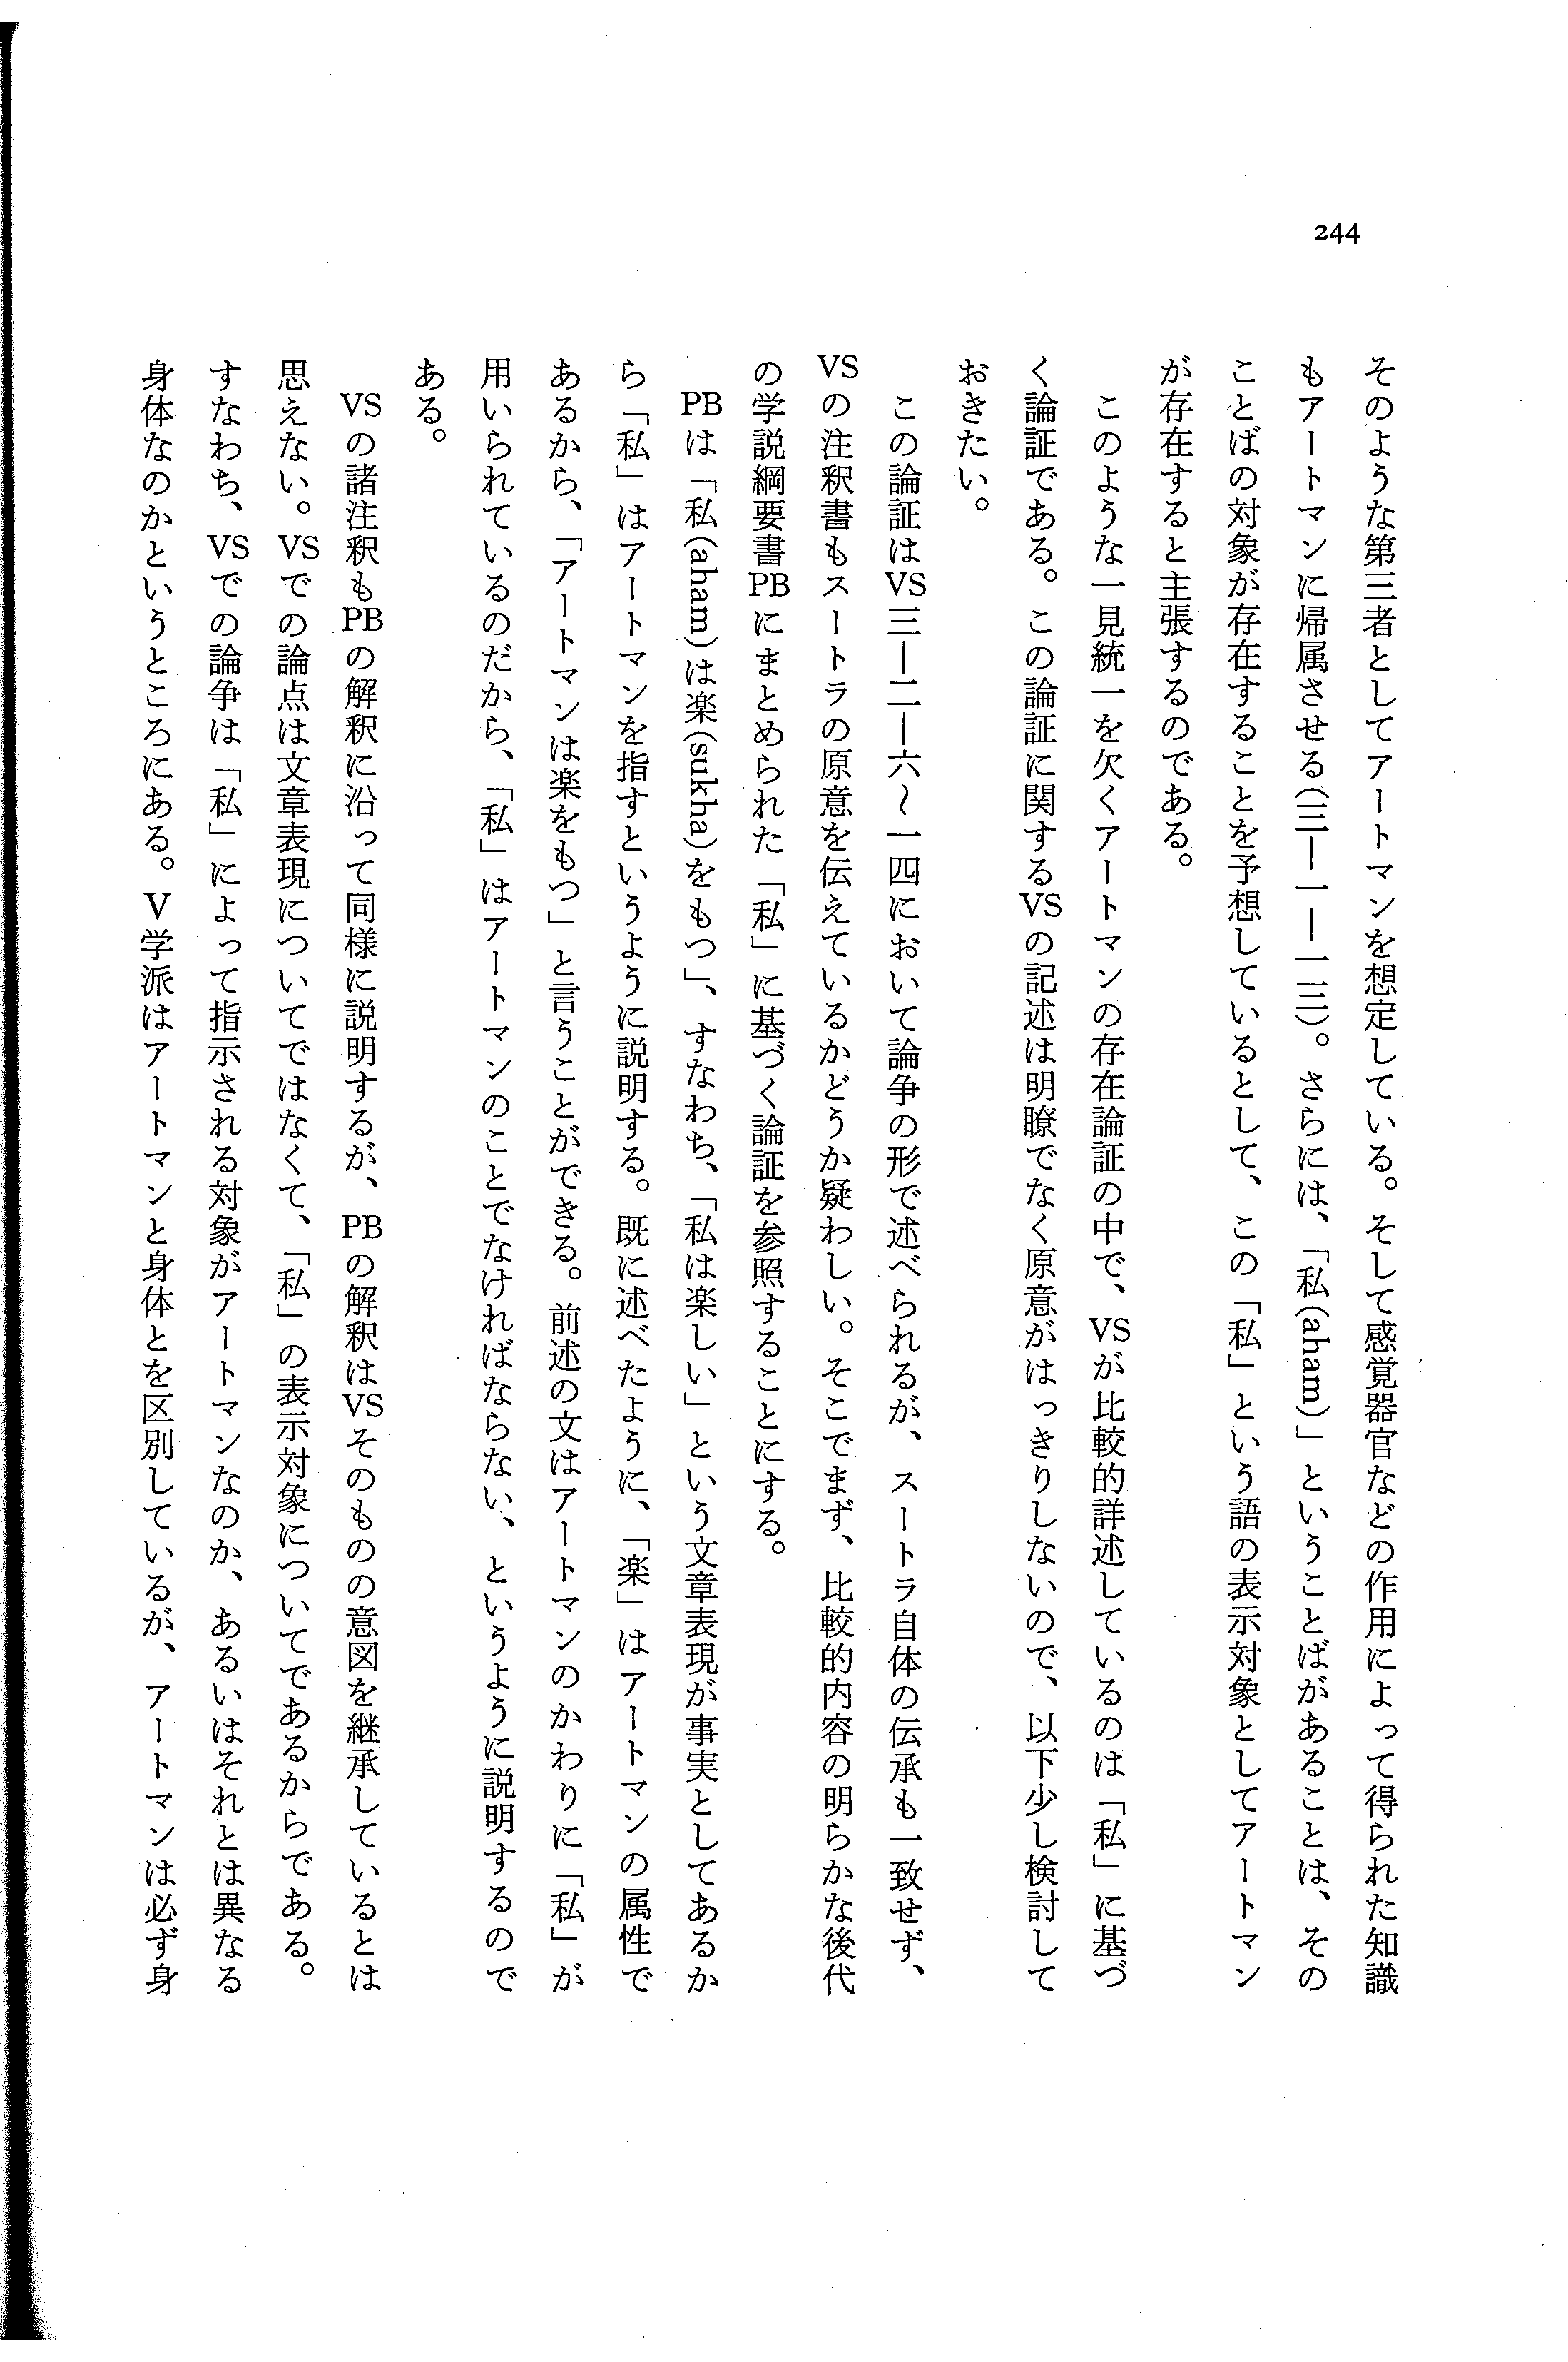 244
そのような第三者としてアートマンを想定している。そして感覚器官などの作用によって得られた知識
もアートマンに帰属させる(三―一―一三)。さらには、「私(aham)」ということばがあることは、その
ことばの対象が存在することを予想しているとして、この「私」という語の表示対象としてアートマン
が存在すると主張するのである。
このような一見統一を欠くアートマンの存在論証の中で、VSが比較的詳述しているのは「私」に基づ
く論証である。この論証に関するVSの記述は明瞭でなく原意がはっきりしないので、以下少し検討して
おきたい。
この論証はVS三―二―六〜一四において論争の形で述べられるが、スートラ自体の伝承も一致せず、
VSの注釈書もスートラの原意を伝えているかどうか疑わしい。そこでまず、比較的内容の明らかな後代
の学説綱要書PBにまとめられた「私」に基づく論証を参照することにする。
PBは「私(aham)は楽(sukha)をもつ」、すなわち、「私は楽しい」という文章表現が事実としてあるか
ら「私」はアートマンを指すというように説明する。既に述べたように、「楽」はアートマンの属性で
あるから、「アートマンは楽をもつ」と言うことができる。前述の文はアートマンのかわりに「私」が
用いられているのだから、「私」はアートマンのことでなければならない、というように説明するので
ある。
VSの諸注釈もPBの解釈に沿って同様に説明するが、PBの解釈はVSそのものの意図を継承しているとは
思えない。VSでの論点は文章表現についてではなくて、「私」の表示対象についてであるからである。
すなわち、VSでの論争は「私」によって指示される対象がアートマンなのか、あるいはそれとは異なる
身体なのかというところにある。V学派はアートマンと身体とを区別しているが、アートマンは必ず身